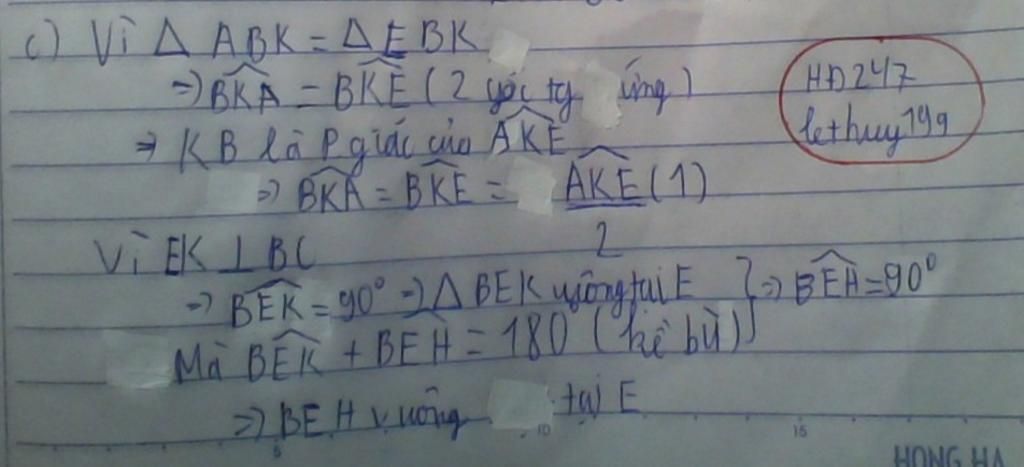 c) Vì Δ ABK = Δ EBK
⇒ \widehat{BKA} = \widehat{BKE} (2 góc tg ứng)
⇒ KB là P giác của \widehat{AKE}
⇒ \widehat{BKA} = \widehat{BKE} = \frac{\widehat{AKE}}{2} (1)
Vì EK ⊥ BC
⇒ \widehat{BEK} = 90° ⇒ Δ BEK vuông tại E } ⇒ \widehat{BEH} = 90°
Mà \widehat{BEK} + \widehat{BEH} = 180 (kề bù)
⇒ BEH vuông tại E
HĐ247
lethuy199
5 10 15
HONG HA